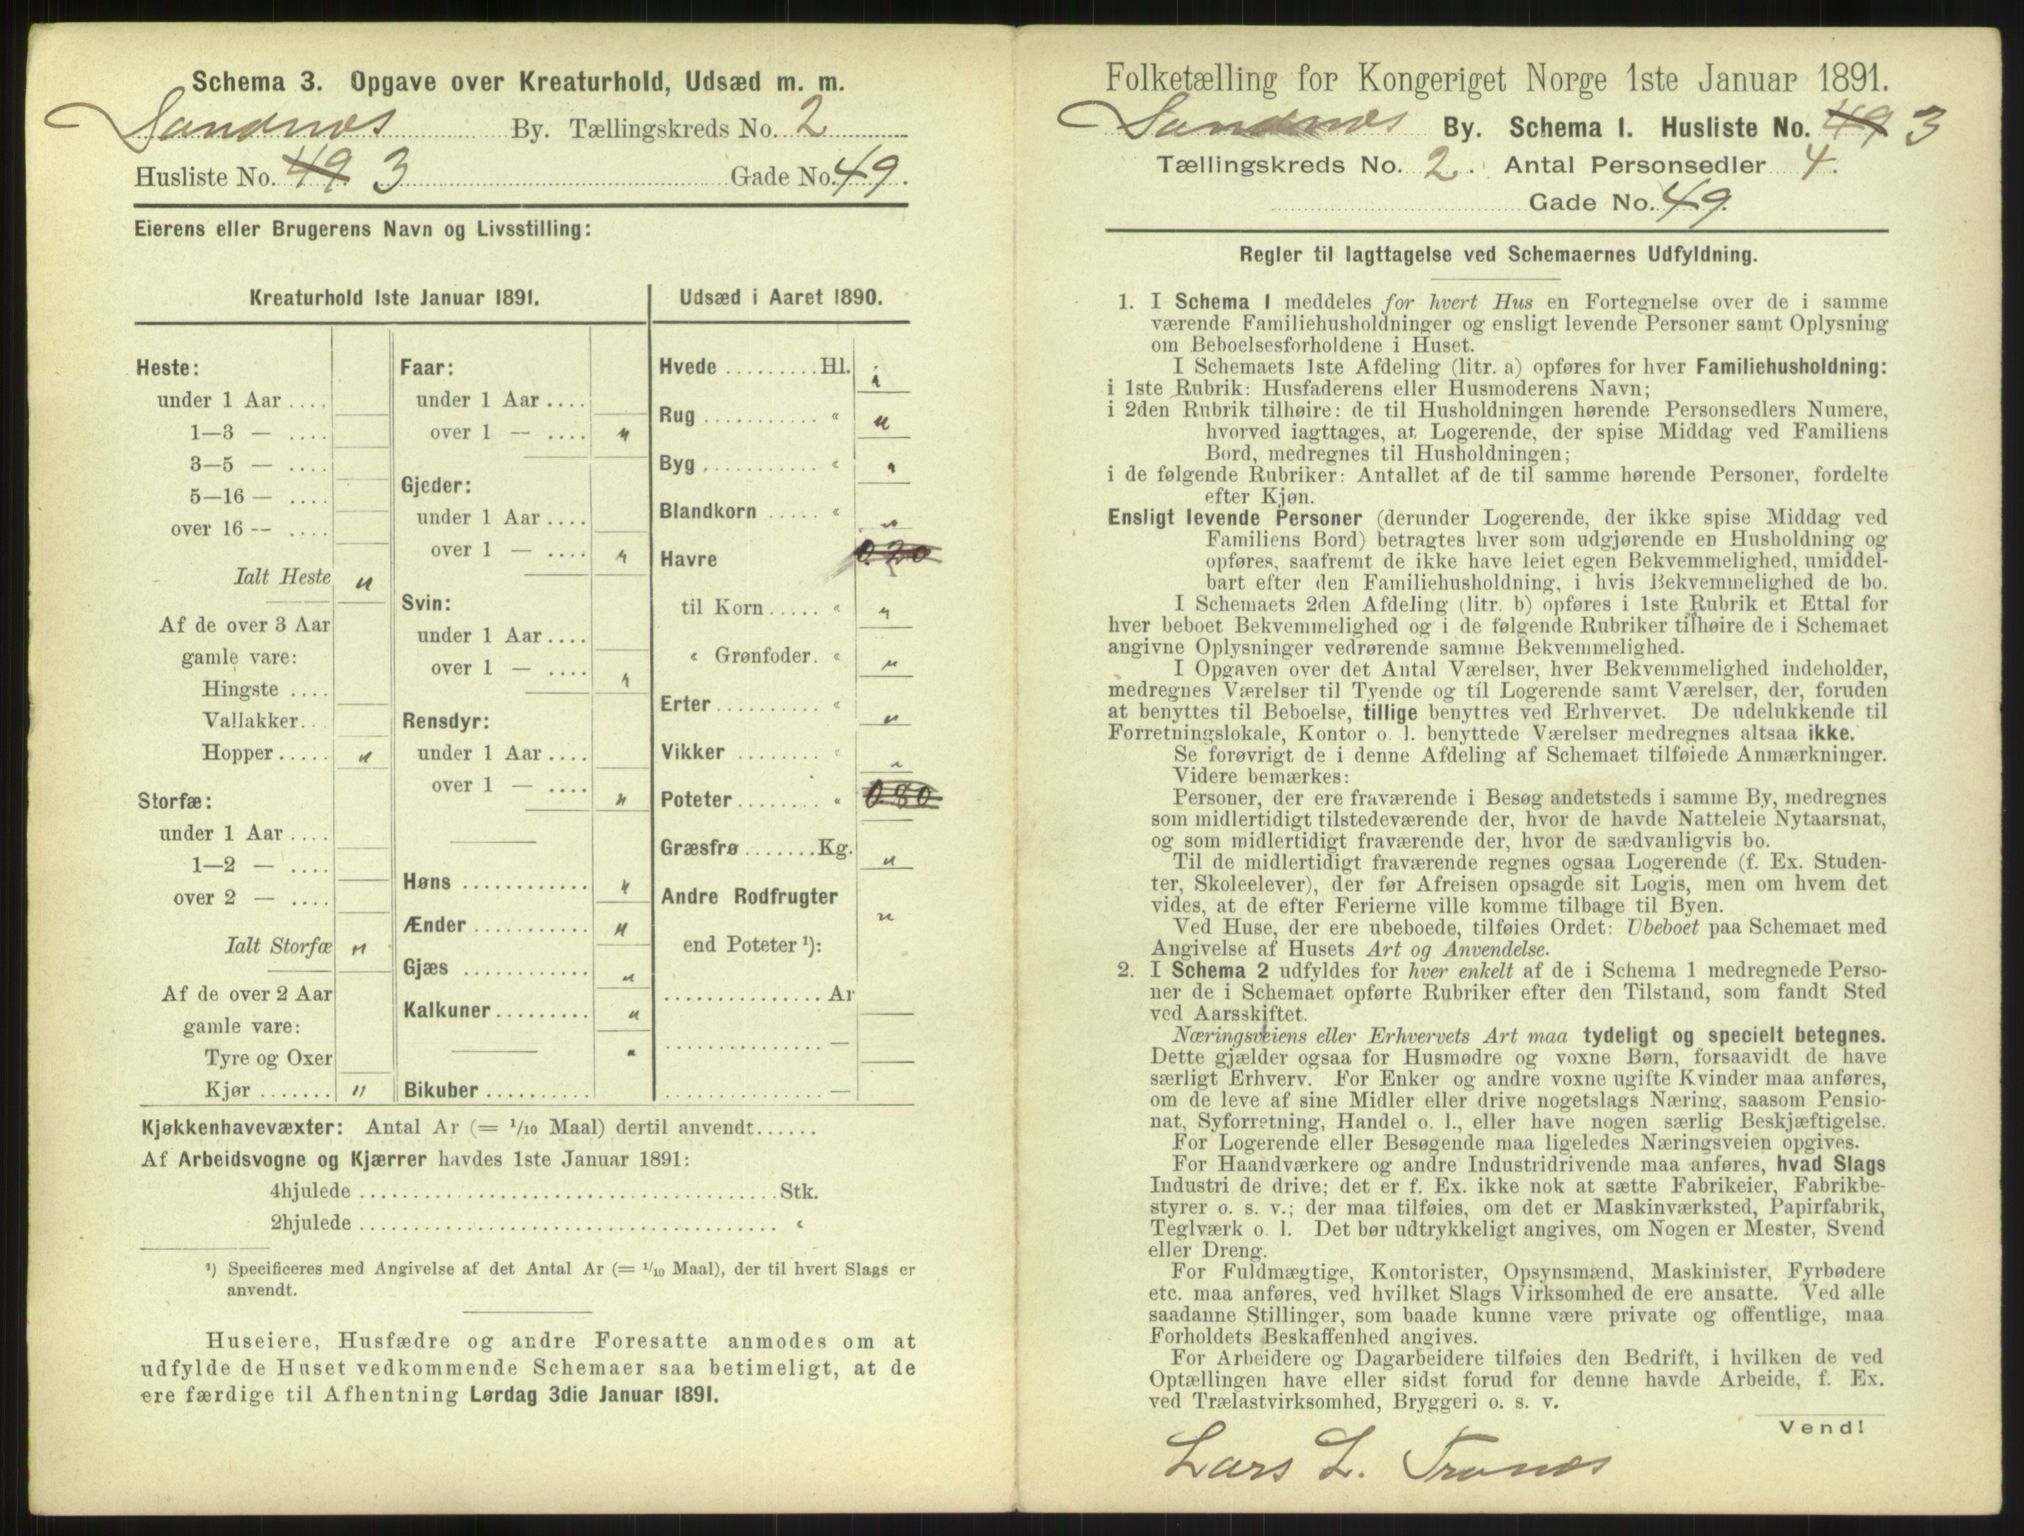 Schema 3. Opgave over Kreaturhold, Udsæd m. m.
Sandnæs By. Tællingskreds No. 2
Husliste No. 49 3 Gade No. 49.
Eierens eller Brugerens Navn og Livsstilling:
Kreaturhold 1ste Januar 1891.
Heste:
under 1 Aar ....
1—3 — ....
3—5 — ....
5—16 — ....
over 16 -- ....
Ialt Heste "
Af de over 3 Aar
gamle vare:
Hingste ....
Vallakker..
Hopper ..... "
Storfæ:
under 1 Aar ....
1—2 — ....
over 2 — ....
Ialt Storfæ "
Af de over 2 Aar
gamle vare:
Tyre og Oxer
Kjør ....... "
Faar:
under 1 Aar ....
over 1 — .... "
Gjeder:
under 1 Aar ....
over 1 — .... "
Svin:
under 1 Aar ....
over 1 — .... "
Rensdyr:
under 1 Aar ....
over 1 — .... "
Høns ............ "
Ænder ........... "
Gjæs ............ "
Kalkuner ......... "
"
Bikuber ..........
Udsæd i Aaret 1890.
Hvede ......... Hl. "
Rug .......... « "
Byg .......... « "
Blandkorn ..... « "
Havre 0.20
til Korn ..... « "
« Grønfoder. « "
Erter .......... « "
Vikker ........ « "
Poteter ........ « 0.80
Græsfrø ....... Kg. "
Andre Rodfrugter "
end Poteter ¹):
............... Ar
............... —
............... —
Kjøkkenhavevæxter: Antal Ar (= 1/10 Maal) dertil anvendt ......
Af Arbeidsvogne og Kjærrer havdes 1ste Januar 1891:
4hjulede ........................................ Stk.
2hjulede ........................................ «
¹) Specificeres med Angivelse af det Antal Ar (= 1/10 Maal), der til hvert Slags er
anvendt.
Huseiere, Husfædre og andre Foresatte anmodes om at
udfylde de Huset vedkommende Schemaer saa betimeligt, at de
ere færdige til Afhentning Lørdag 3die Januar 1891.
Folketælling for Kongeriget Norge 1ste Januar 1891.
Sandnæs By. Schema 1. Husliste No. 49 3
Tællingskreds No. 2. Antal Personsedler 4.
Gade No. 49.
Regler til Iagttagelse ved Schemaernes Udfyldning.
1. I Schema 1 meddeles for hvert Hus en Fortegnelse over de i samme
værende Familiehusholdninger og ensligt levende Personer samt Oplysning
om Beboelsesforholdene i Huset.
I Schemaets 1ste Afdeling (litr. a) opføres for hver Familiehusholdning:
i 1ste Rubrik: Husfaderens eller Husmoderens Navn;
i 2den Rubrik tilhøire: de til Husholdningen hørende Personsedlers Numere,
hvorved iagttages, at Logerende, der spise Middag ved Familiens
Bord, medregnes til Husholdningen;
i de følgende Rubriker: Antallet af de til samme hørende Personer, fordelte
efter Kjøn.
Ensligt levende Personer (derunder Logerende, der ikke spise Middag ved
Familiens Bord) betragtes hver som udgjørende en Husholdning og
opføres, saafremt de ikke have leiet egen Bekvemmelighed, umiddel-
bart efter den Familiehusholdning, i hvis Bekvemmelighed de bo.
I Schemaets 2den Afdeling (litr. b) opføres i 1ste Rubrik et Ettal for
hver beboet Bekvemmelighed og i de følgende Rubriker tilhøire de i Schemaet
angivne Oplysninger vedrørende samme Bekvemmelighed.
I Opgaven over det Antal Værelser, hver Bekvemmelighed indeholder,
medregnes Værelser til Tyende og til Logerende samt Værelser, der, foruden
at benyttes til Beboelse, tillige benyttes ved Erhvervet. De udelukkende til
Forretningslokale, Kontor o. l. benyttede Værelser medregnes altsaa ikke.
Se forøvrigt de i denne Afdeling af Schemaet tilføiede Anmærkninger.
Videre bemærkes:
Personer, der ere fraværende i Besøg andetsteds i samme By, medregnes
som midlertidigt tilstedeværende der, hvor de havde Natteleie Nytaarsnat,
og som midlertidigt fraværende der, hvor de sædvanligvis bo.
Til de midlertidigt fraværende regnes ogsaa Logerende (f. Ex. Studen-
ter, Skoleelever), der før Afreisen opsagde sit Logis, men om hvem det
vides, at de efter Ferierne ville komme tilbage til Byen.
Ved Huse, der ere ubeboede, tilføies Ordet: Ubeboet paa Schemaet med
Angivelse af Husets Art og Anvendelse.
2. I Schema 2 udfyldes for hver enkelt af de i Schema 1 medregnede Perso-
ner de i Schemaet opførte Rubriker efter den Tilstand, som fandt Sted
ved Aarsskiftet.
Næringsveiens eller Erhvervets Art maa tydeligt og specielt betegnes.
Dette gjælder ogsaa for Husmødre og voxne Børn, forsaavidt de have
særligt Erhverv. For Enker og andre voxne ugifte Kvinder maa anføres,
om de leve af sine Midler eller drive nogetslags Næring, saasom Pensio-
nat, Syforretning, Handel o. l., eller have nogen særlig Beskjæftigelse.
For Logerende eller Besøgende maa ligeledes Næringsveien opgives.
For Haandværkere og andre Industridrivende maa anføres, hvad Slags
Industri de drive; det er f. Ex. ikke nok at sætte Fabrikeier, Fabrikbe-
styrer o. s. v.; der maa tilføies, om det er Maskinværksted, Papirfabrik,
Teglværk o. l. Det bør udtrykkeligt angives, om Nogen er Mester, Svend
eller Dreng.
For Fuldmægtige, Kontorister, Opsynsmænd, Maskinister, Fyrbødere
etc. maa anføres, ved hvilket Slags Virksomhed de ere ansatte. Ved alle
saadanne Stillinger, som baade kunne være private og offentlige, maa
Forholdets Beskaffenhed angives.
For Arbeidere og Dagarbeidere tilføies den Bedrift, i hvilken de ved
Optællingen have eller sidst forud for denne havde Arbeide, f. Ex.
ved Trælastvirksomhed, Bryggeri o. s. v.
Vend!
Lars L. Tronæs